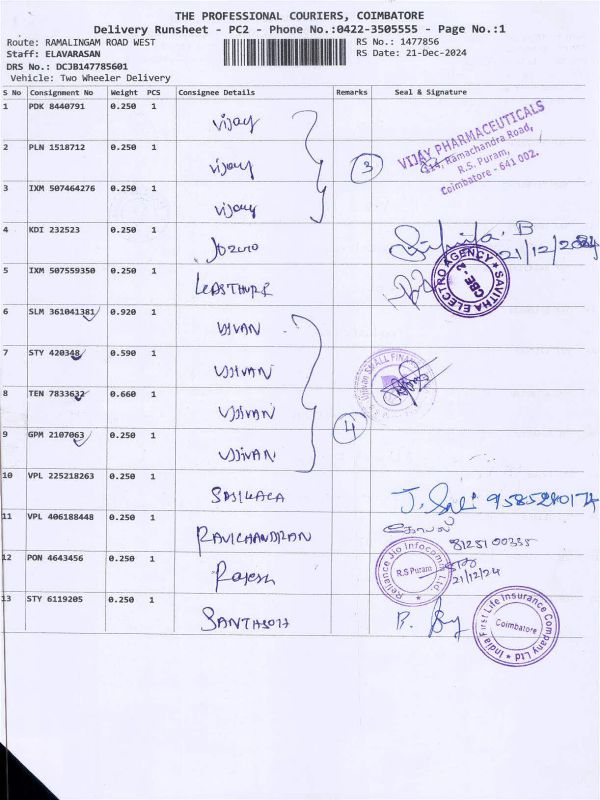 THE PROFESSIONAL COURIERS, COIMBATORE
Delivery Runsheet - PC2 - Phone No.:0422-3505555 - Page No.:1
Route: RAMALINGAM ROAD WEST
RS No.: 1477856
Staff: ELAVARASAN
RS Date: 21-Dec-2024
DRS No.: DCJB147785601
Vehicle: Two Wheeler Delivery
S No Consignment No Weight PCS Consignee Details Remarks Seal & Signature
1 PDK 8440791 0.250 1 vijay
2 PLN 1518712 0.250 1 vijay
3 IXM 507464276 0.250 1 vijay
3
VIJAY PHARMACEUTICALS
Ramachandra Road,
R.S. Puram,
Coimbatore - 641 002.
4 KDI 232523 0.250 1
21/12/2024
5 IXM 507559350 0.250 1
SAVITHA ELECTRO AGENCY
CBE - 2
6 SLM 361041381 0.920 1 UJIVAN
7 STY 420348 0.590 1 UJJIVAN
8 TEN 7833632 0.660 1 UJJIVAN
9 GPM 2107063 0.250 1 UJJIVAN
4
Ujjivan SMALL FINANCE
10 VPL 225218263 0.250 1 SASIKALA
11 VPL 406188448 0.250 1 RAVICHANDRAN
8125100335
12 PON 4643456 0.250 1 Rajesh
Reliance Jio Infocomm Ltd.
R.S Puram
21/12/24
13 STY 6119205 0.250 1 SANTHOSH
India First Life Insurance Company Ltd
Coimbatore